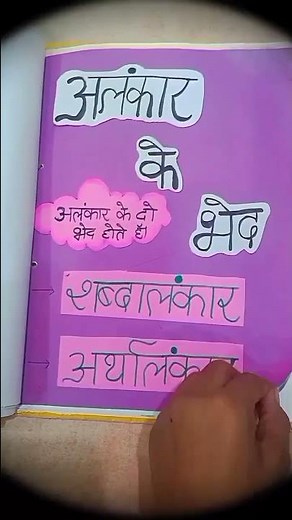 अलंकार
के
भेद
अलंकार के दो
भेद होते है।
शब्दालंकार
अर्थालंकार